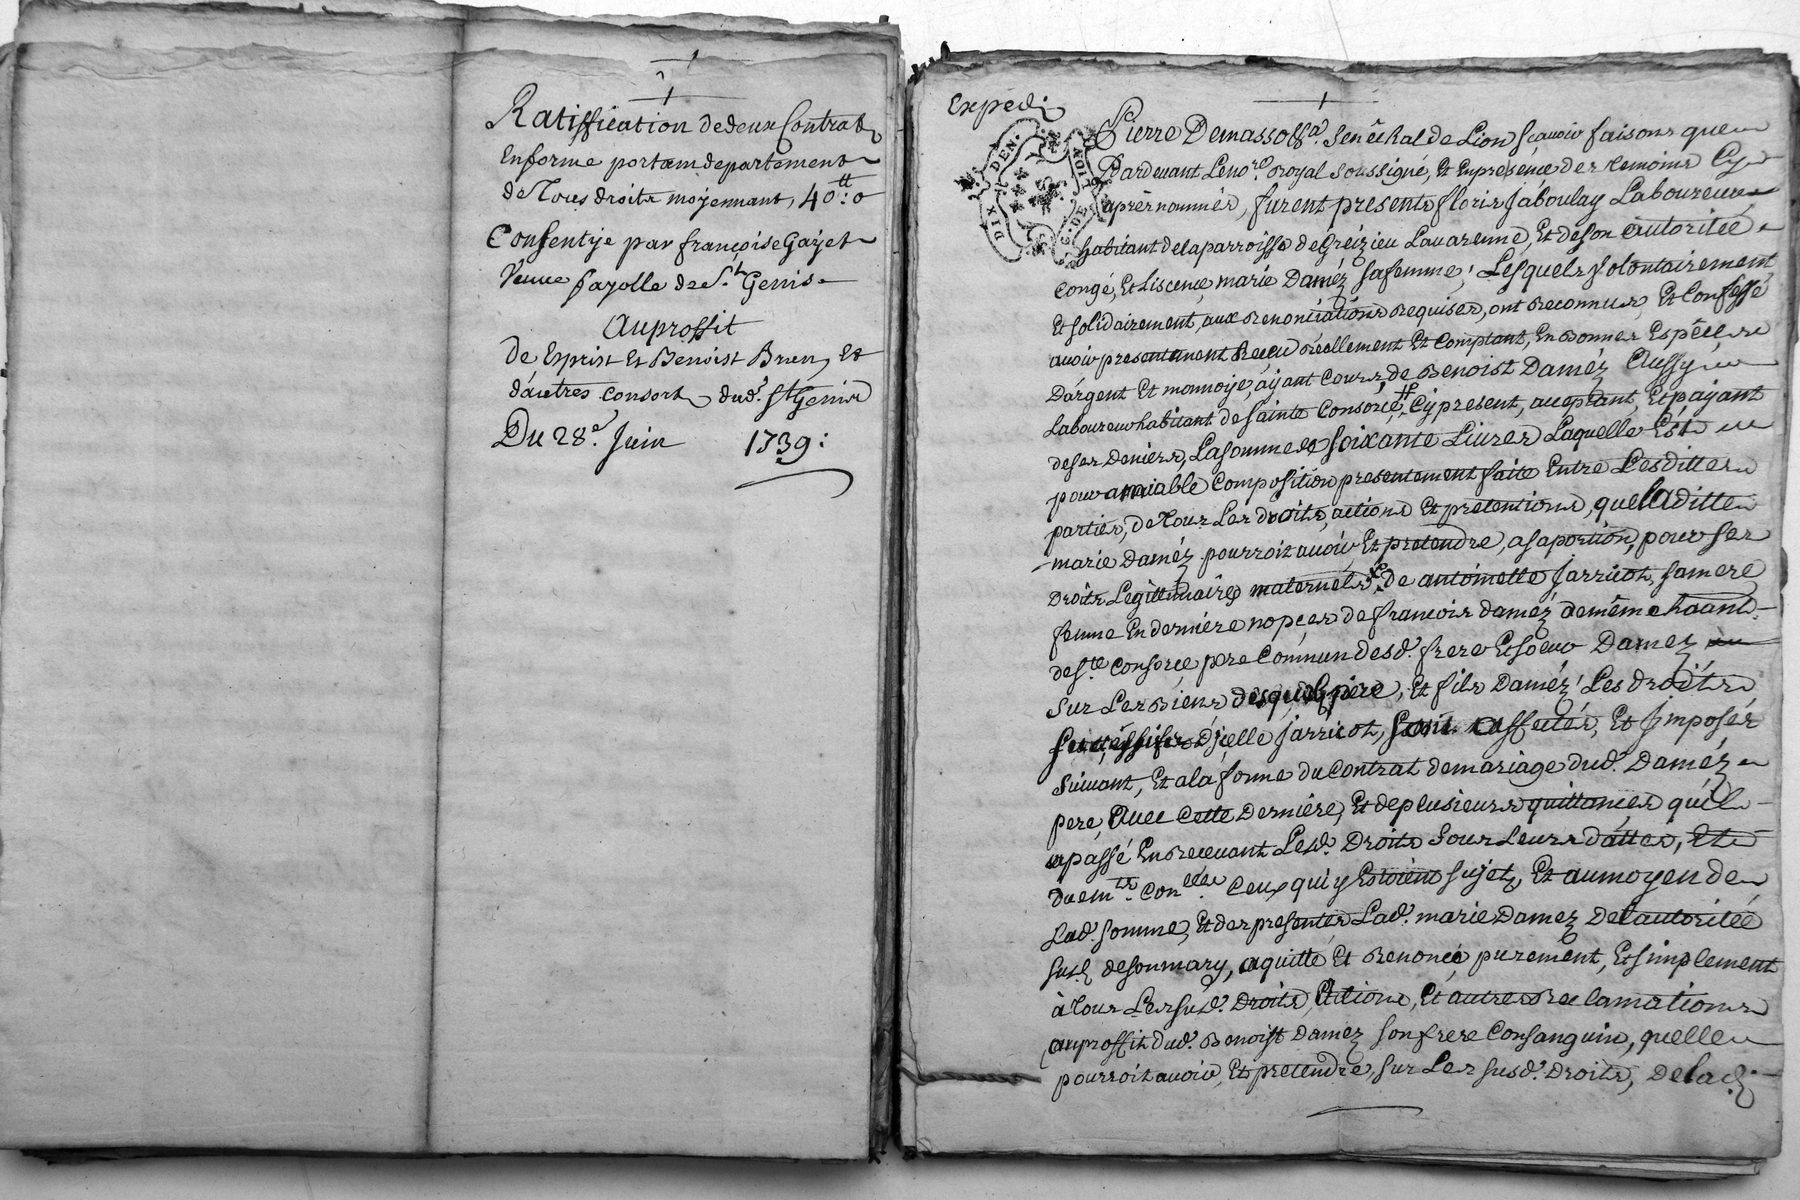 Ratiffication de deux Contrat
En forme portam departement
de Tous droits moyennant, 40tt : o
Consentije par françoise Gayet
Veuve fayolle de St. Genis
Auproffit
de Esprist Et Benoist Brun, Et
d'autres consort dud. St Genis
Du 28e. Juin 1739 :
Expedi
DIX DEN. G. DE LION
Pierre Demasso &a. Senêchal de Lion sçavoir faisons que
Pardevant Le no.re royal soussigné, Et En presence des temoins Cy
aprés nommés, furent presents floris Jaboulay Laboureur
habitant de la parroisse de Greizieu Lavarenne, Et de son autoritée
Congé, Et Liscence, marie Daméz sa femme, Lesquels Volontairement
Et solidairement, aux Renonciations requises, ont Reconnus, Et Confessé
avoir presentement Receu réellement Et Comptant, En bonnes Espêces
D'argent Et monnoÿe, aÿant Cours, de Benoist Daméz Aussy
Laboureur habitant de Sainte Consorce, Cy present, acceptant, Et paÿant
de ses Deniers, La somme de soixante Livres Laquelle Est
pour amiable Composition presentement faite Entre Lesdittes
parties, de Tous Les droits, actions Et pretentions, que laditte
marie Daméz pourroit avoir Et pretendre, a sa portion, pour ses
Droits Legittimaires maternels, de antoinette Jarricot, sa mere
femme En derniére nopces de francois daméz de même
de Ste Consorce pere Commun desd. frere Et soeur Damez
sur Les Biens desquels pére, Et fils Daméz, Les droits
sucçéssifs D'jcelle Jarricot, sont affectés, Et Jmposés
suivant, Et a la forme du Contrat de mariage dud. Daméz
pere, Avec Cette Derniére, Et de plusieurs quittances, qu'il
a passé En Recevant Lesd. Droits sous Leurs dattes, Et
Ceux qui y Estoient sujets, Et au moyen de
Lad. somme, Et des presentes Lad. marie Damez De l'autoritée
susd. de son mary, a quitté Et Renoncé, purement, Et simplement
à Tous Les susd. Droits, Actions, Et autres Reclamations
au proffit dud. Benoist Damez son frere Consanguin, quelle
pourroit avoir, Et pretendre, sur Les susd. Droits, De lad.